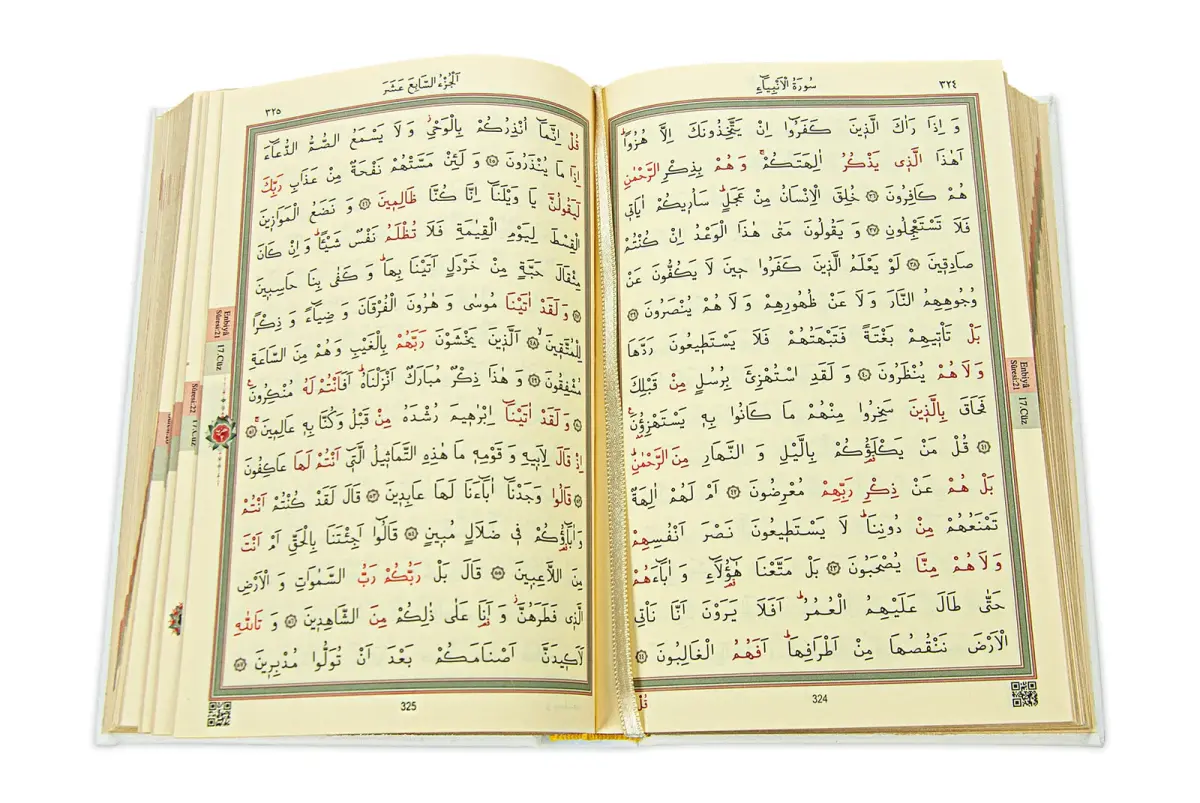 ٣٢٤
سُورَةُ الْاَنْبِيَاءِ
وَ اِذَا رَاٰكَ الَّذ۪ينَ كَفَرُٓوا اِنْ يَتَّخِذُونَكَ اِلَّا هُزُوًاۜ
اَهٰذَا الَّذ۪ي يَذْكُرُ اٰلِهَتَكُمْۚ وَ هُمْ بِذِكْرِ الرَّحْمٰنِ
هُمْ كَافِرُونَ ﴿٣٦﴾ خُلِقَ الْاِنْسَانُ مِنْ عَجَلٍۜ سَاُر۪يكُمْ اٰيَات۪ي
فَلَا تَسْتَعْجِلُونِ ﴿٣٧﴾ وَ يَقُولُونَ مَتٰى هٰذَا الْوَعْدُ اِنْ كُنْتُمْ
صَادِق۪ينَ ﴿٣٨﴾ لَوْ يَعْلَمُ الَّذ۪ينَ كَفَرُوا ح۪ينَ لَا يَكُفُّونَ عَنْ
وُجُوهِهِمُ النَّارَ وَ لَا عَنْ ظُهُورِهِمْ وَ لَا هُمْ يُنْصَرُونَ ﴿٣٩﴾
بَلْ تَأْت۪يهِمْ بَغْتَةً فَتَبْهَتُهُمْ فَلَا يَسْتَط۪يعُونَ رَدَّهَا
وَ لَا هُمْ يُنْظَرُونَ ﴿٤٠﴾ وَ لَقَدِ اسْتُهْزِئَ بِرُسُلٍ مِنْ قَبْلِكَ
فَحَاقَ بِالَّذ۪ينَ سَخِرُوا مِنْهُمْ مَا كَانُوا بِه۪ يَسْتَهْزِؤُ۫نَ۟
﴿٤١﴾ قُلْ مَنْ يَكْلَؤُ۬كُمْ بِالَّيْلِ وَ النَّهَارِ مِنَ الرَّحْمٰنِۜ
بَلْ هُمْ عَنْ ذِكْرِ رَبِّهِمْ مُعْرِضُونَ ﴿٤٢﴾ اَمْ لَهُمْ اٰلِهَةٌ
تَمْنَعُهُمْ مِنْ دُونِنَاۜ لَا يَسْتَط۪يعُونَ نَصْرَ اَنْفُسِهِمْ
وَ لَا هُمْ مِنَّا يُصْحَبُونَ ﴿٤٣﴾ بَلْ مَتَّعْنَا هٰٓؤُ۬لَٓاءِ وَ اٰبَٓاءَهُمْ
حَتّٰى طَالَ عَلَيْهِمُ الْعُمُرُۜ اَفَلَا يَرَوْنَ اَنَّا نَأْتِي
الْاَرْضَ نَنْقُصُهَا مِنْ اَطْرَافِهَاۜ اَفَهُمُ الْغَالِبُونَ ﴿٤٤﴾
قُلْ
324
Enbiyâ
Sûresi:21
17.Cüz
اَلْجُزْءُ السَّابِعَ عَشَرَ
٣٢٥
قُلْ اِنَّمَٓا اُنْذِرُكُمْ بِالْوَحْيِۘ وَ لَا يَسْمَعُ الصُّمُّ الدُّعَٓاءَ
اِذَا مَا يُنْذَرُونَ ﴿٤٥﴾ وَ لَئِنْ مَسَّتْهُمْ نَفْحَةٌ مِنْ عَذَابِ رَبِّكَ
لَيَقُولُنَّ يَا وَيْلَنَٓا اِنَّا كُنَّا ظَالِم۪ينَ ﴿٤٦﴾ وَ نَضَعُ الْمَوَاز۪ينَ
الْقِسْطَ لِيَوْمِ الْقِيٰمَةِ فَلَا تُظْلَمُ نَفْسٌ شَيْـًٔاۜ وَ اِنْ كَانَ
مِثْقَالَ حَبَّةٍ مِنْ خَرْدَلٍ اَتَيْنَا بِهَاۜ وَ كَفٰى بِنَا حَاسِب۪ينَ
﴿٤٧﴾ وَ لَقَدْ اٰتَيْنَا مُوسٰى وَ هٰرُونَ الْفُرْقَانَ وَ ضِيَٓاءً وَ ذِكْرًا
لِلْمُتَّق۪ينَۙ ﴿٤٨﴾ اَلَّذ۪ينَ يَخْشَوْنَ رَبَّهُمْ بِالْغَيْبِ وَ هُمْ مِنَ السَّاعَةِ
مُشْفِقُونَ ﴿٤٩﴾ وَ هٰذَا ذِكْرٌ مُبَارَكٌ اَنْزَلْنَاهُۜ اَفَاَنْتُمْ لَهُ مُنْكِرُونَ۟
﴿٥٠﴾ وَ لَقَدْ اٰتَيْنَٓا اِبْرٰه۪يمَ رُشْدَهُ مِنْ قَبْلُ وَ كُنَّا بِه۪ عَالِم۪ينَۚ ﴿٥١﴾
اِذْ قَالَ لِاَب۪يهِ وَ قَوْمِه۪ مَا هٰذِهِ التَّمَاث۪يلُ الَّت۪ٓي اَنْتُمْ لَهَا عَاكِفُونَ
﴿٥٢﴾ قَالُوا وَجَدْنَٓا اٰبَٓاءَنَا لَهَا عَابِد۪ينَ ﴿٥٣﴾ قَالَ لَقَدْ كُنْتُمْ اَنْتُمْ
وَ اٰبَٓاؤُ۬كُمْ ف۪ي ضَلَالٍ مُب۪ينٍ ﴿٥٤﴾ قَالُٓوا اَجِئْتَنَا بِالْحَقِّ اَمْ اَنْتَ
مِنَ اللَّاعِب۪ينَ ﴿٥٥﴾ قَالَ بَلْ رَبُّكُمْ رَبُّ السَّمٰوَاتِ وَ الْاَرْضِ
الَّذ۪ي فَطَرَهُنَّۘ وَ اَنَا۬ عَلٰى ذٰلِكُمْ مِنَ الشَّاهِد۪ينَ ﴿٥٦﴾ وَ تَاللّٰهِ
لَاَك۪يدَنَّ اَصْنَامَكُمْ بَعْدَ اَنْ تُوَلُّوا مُدْبِر۪ينَ ﴿٥٧﴾
325
Enbiyâ
Sûresi:21
17.Cüz
Sûresi:22
17.Cüz